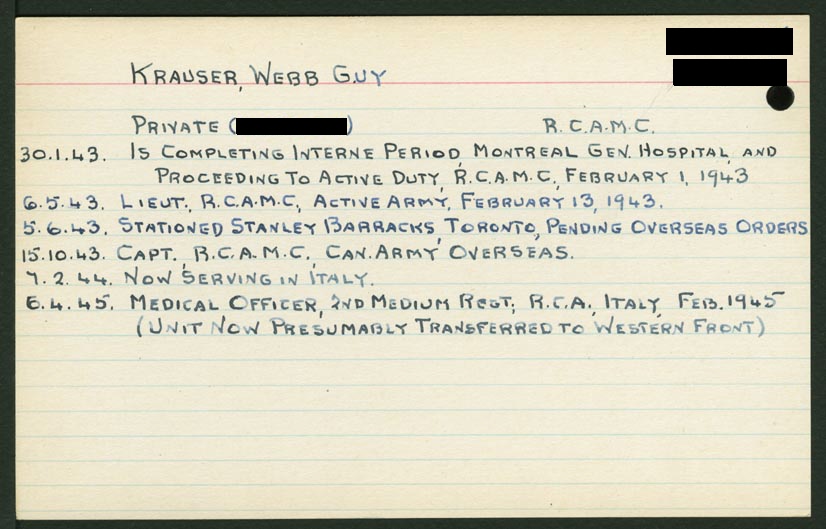 KRAUSER, WEBB GUY
PRIVATE ( ) R.C.A.M.C.
30.1.43. IS COMPLETING INTERNE PERIOD, MONTREAL GEN. HOSPITAL, AND
PROCEEDING TO ACTIVE DUTY, R.C.A.M.C., FEBRUARY 1, 1943
6.5.43. LIEUT., R.C.A.M.C., ACTIVE ARMY, FEBRUARY 13, 1943.
5.6.43. STATIONED STANLEY BARRACKS, TORONTO, PENDING OVERSEAS ORDERS
15.10.43. CAPT., R.C.A.M.C., CAN. ARMY OVERSEAS.
7.2.44. NOW SERVING IN ITALY.
6.4.45. MEDICAL OFFICER, 2ND MEDIUM REGT., R.C.A., ITALY, FEB. 1945
(UNIT NOW PRESUMABLY TRANSFERRED TO WESTERN FRONT)